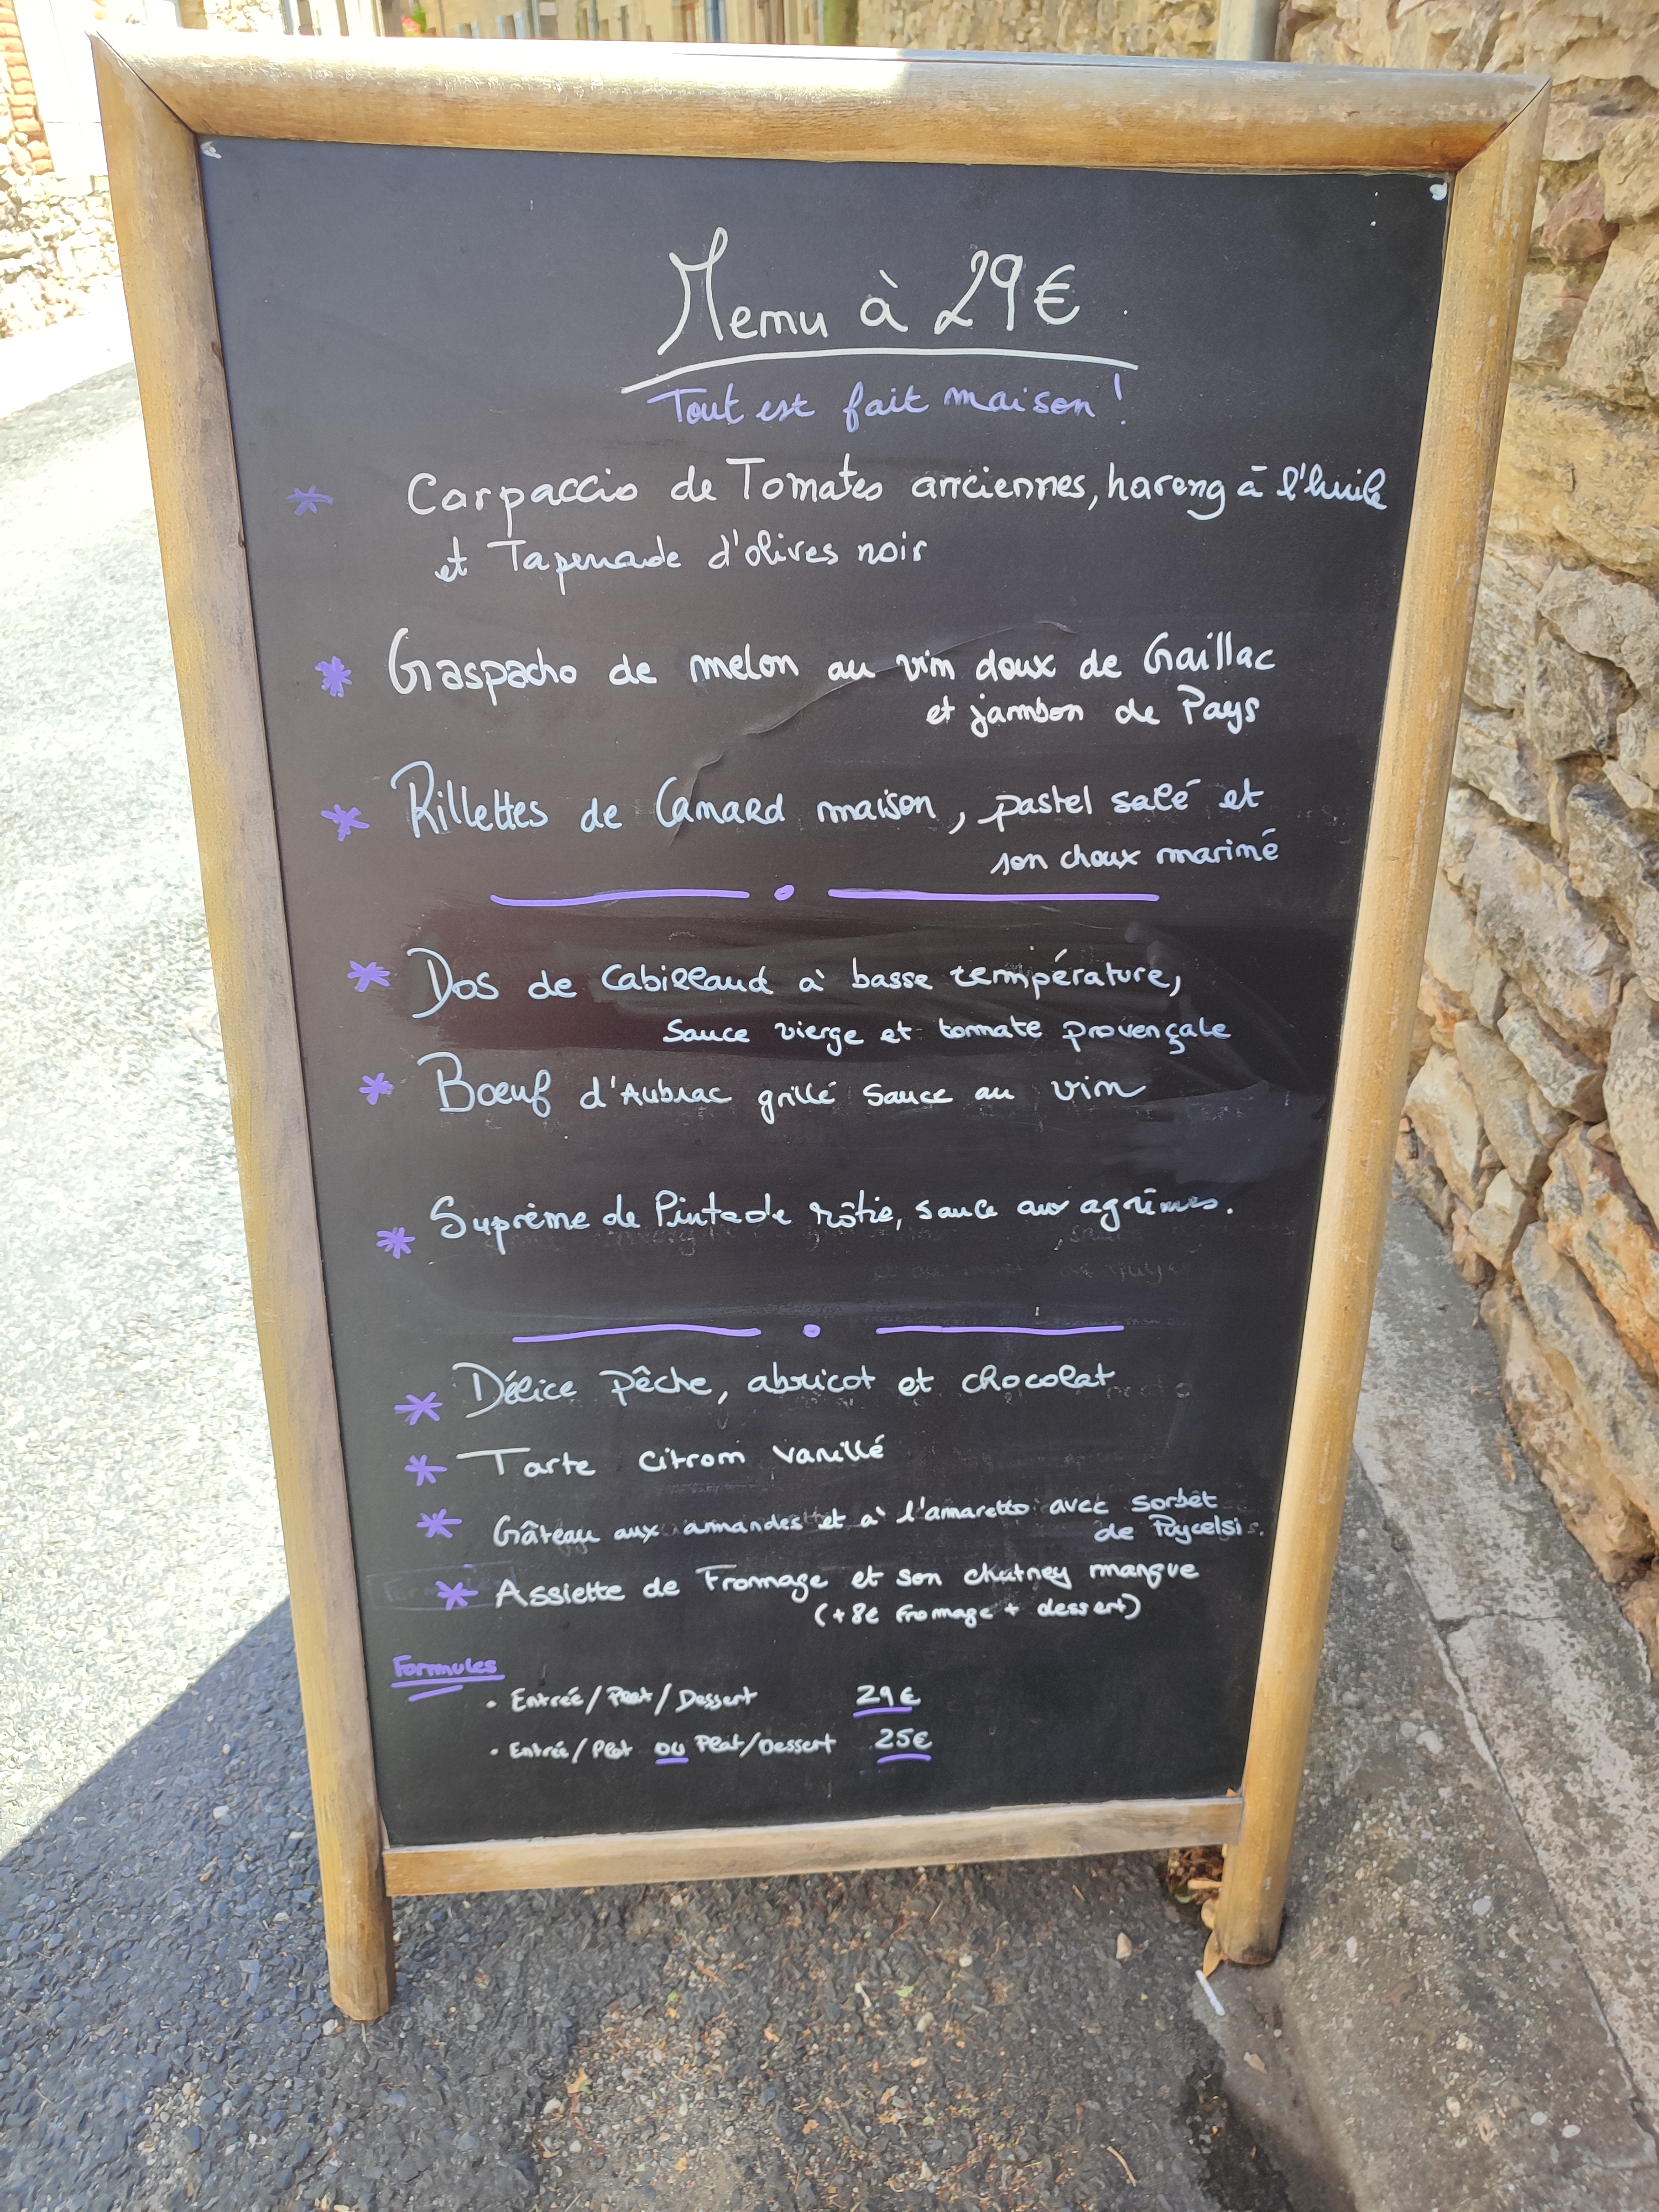 Menu à 29€
Tout est fait maison !
* Carpaccio de Tomates anciennes, hareng à l'huile
et Tapenade d'olives noir
* Gaspacho de melon au vin doux de Gaillac
et jambon de Pays
* Rillettes de Canard maison, pastel salé et
son choux mariné
* Dos de Cabillaud à basse température,
Sauce vierge et tomate provençale
* Bœuf d'Aubrac grillé Sauce au vin
* Suprême de Pintade rôtie, sauce aux agrumes.
* Délice pêche, abricot et chocolat
* Tarte citron vanillé
* Gâteau aux amandes et à l'amaretto avec sorbet
de Puycelsi.
* Assiette de Fromage et son chutney mangue
(+8€ Fromage + dessert)
Formules
• Entrée/Plat/Dessert 29€
• Entrée/Plat ou Plat/Dessert 25€